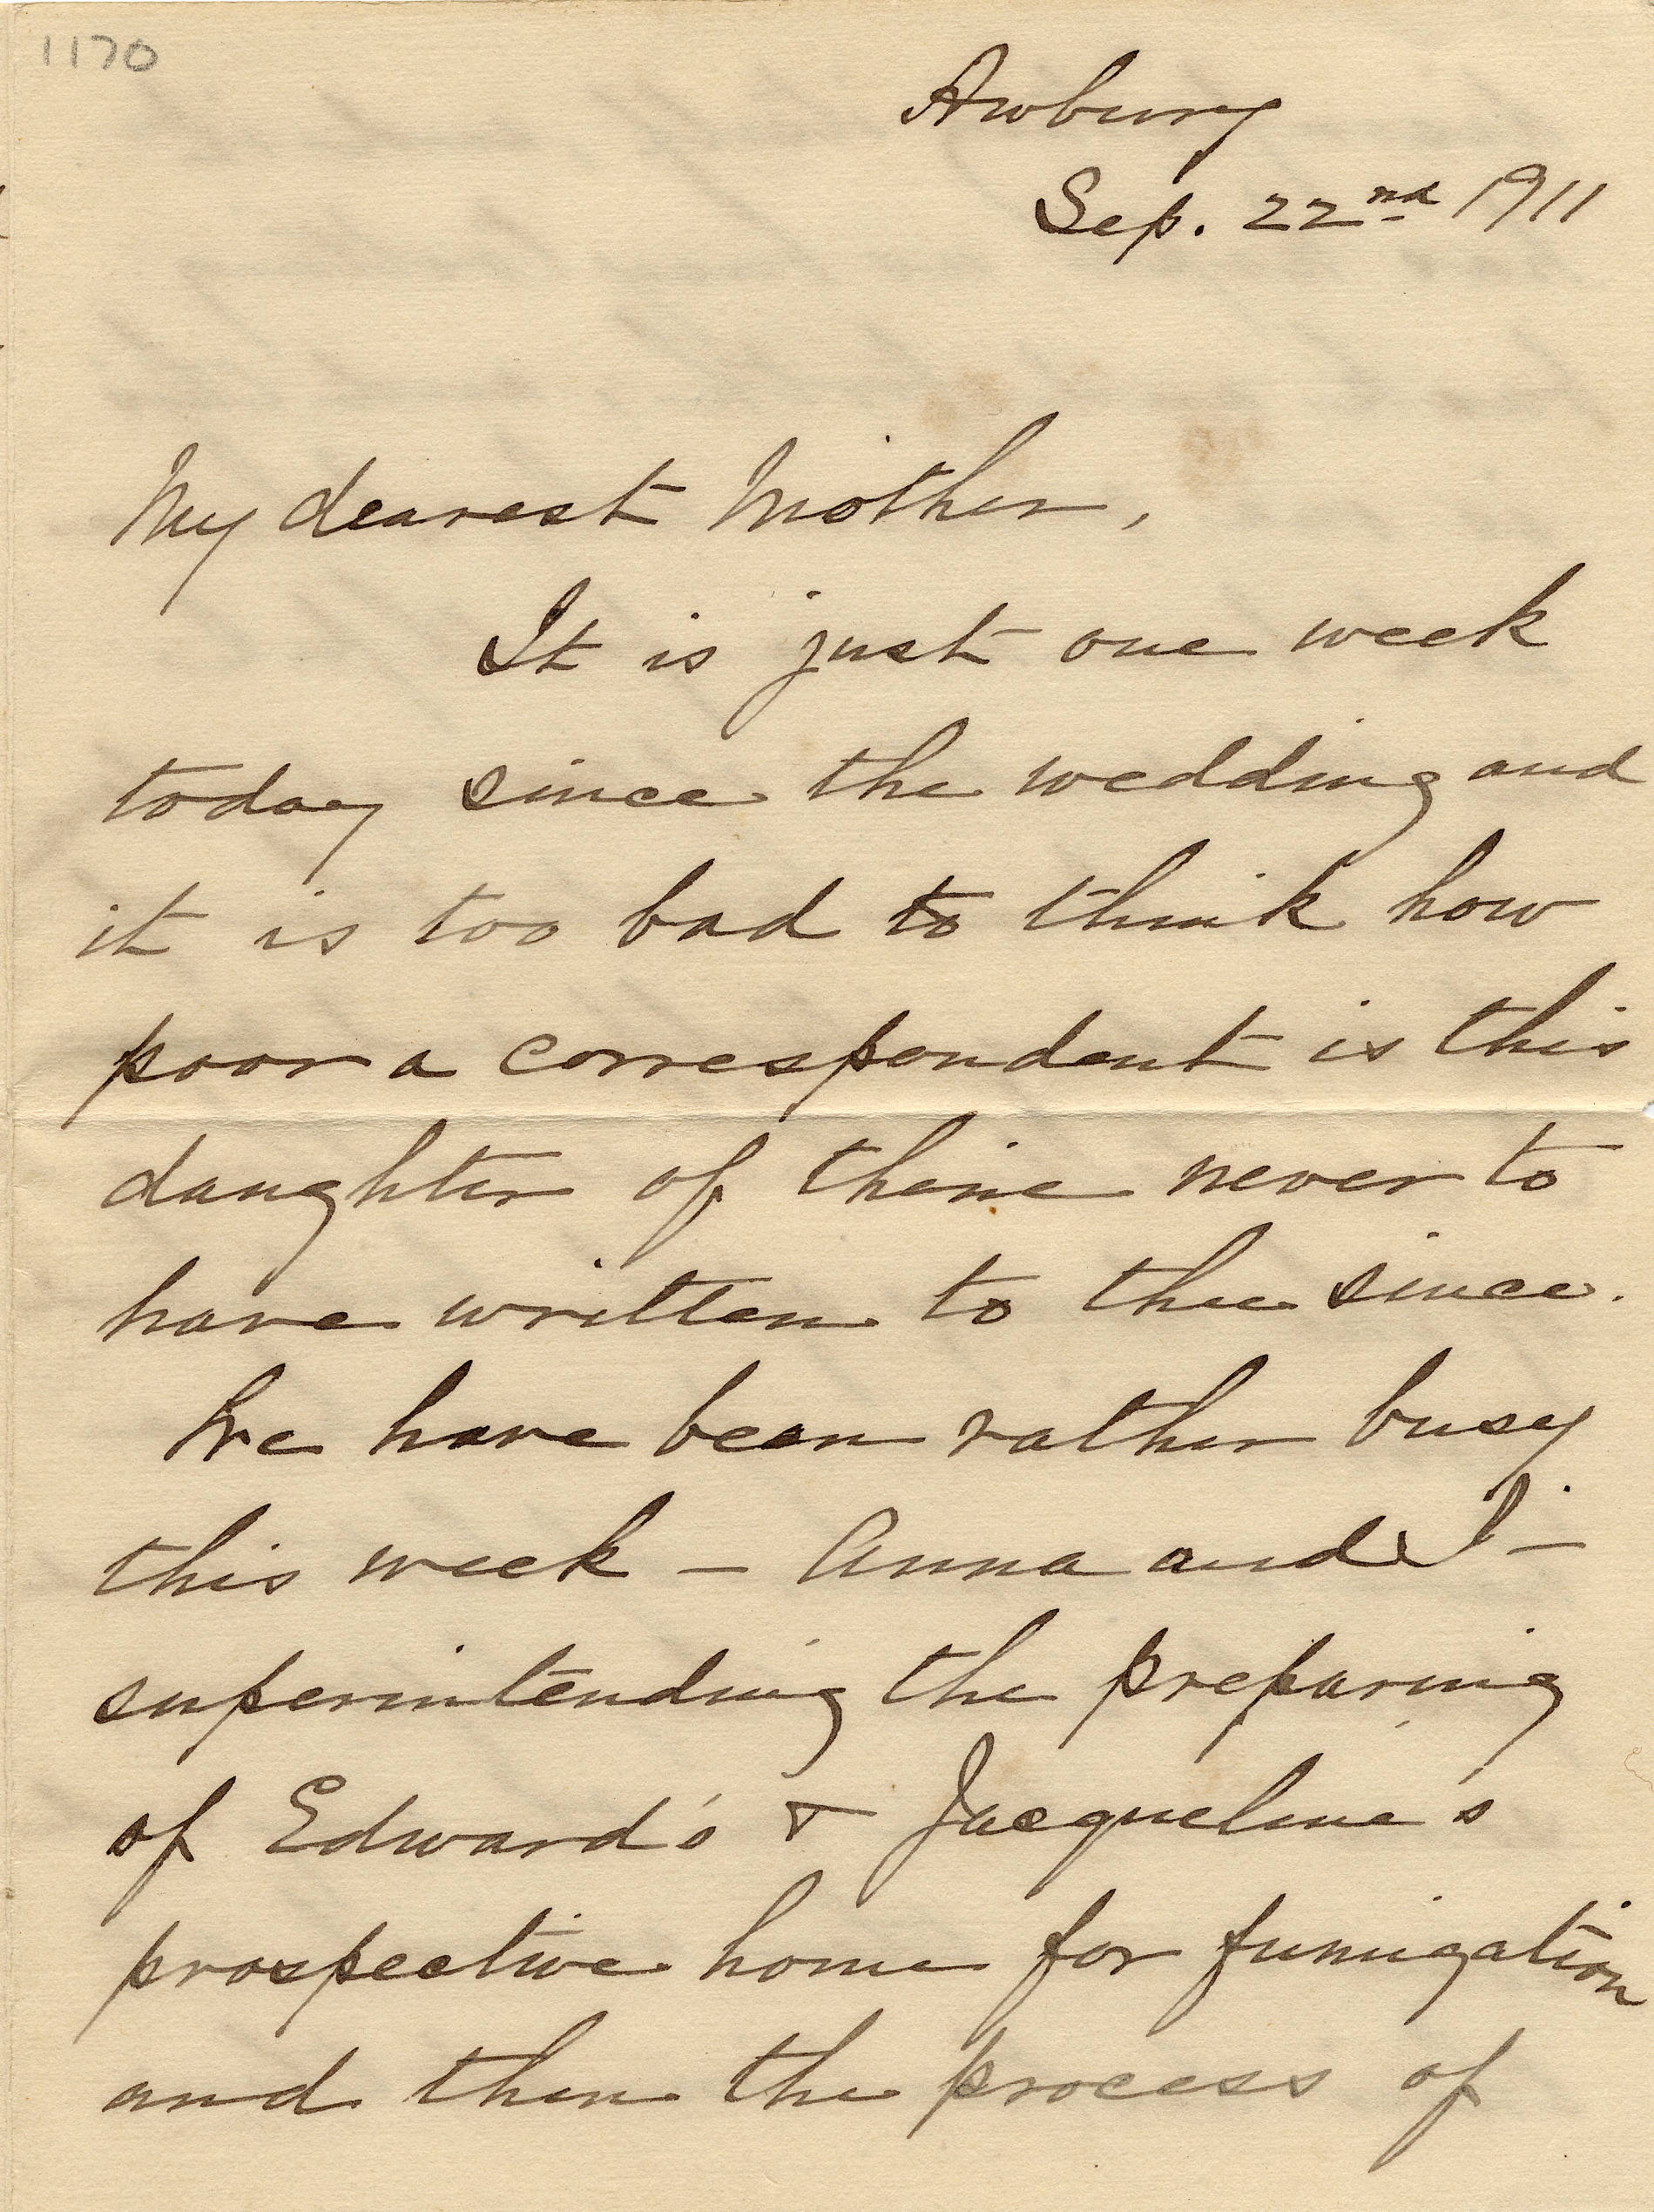 1170
Awbury
Sep. 22nd 1911
My dearest Mother,
It is just one week
today since the wedding and
it is too bad to think how
poor a correspondent is this
daughter of thine never to
have written to thee since.
We have been rather busy
this week – Anna and I –
superintending the preparing
of Edward's & Jacqueline's
prospective home for fumigation
and then the process of